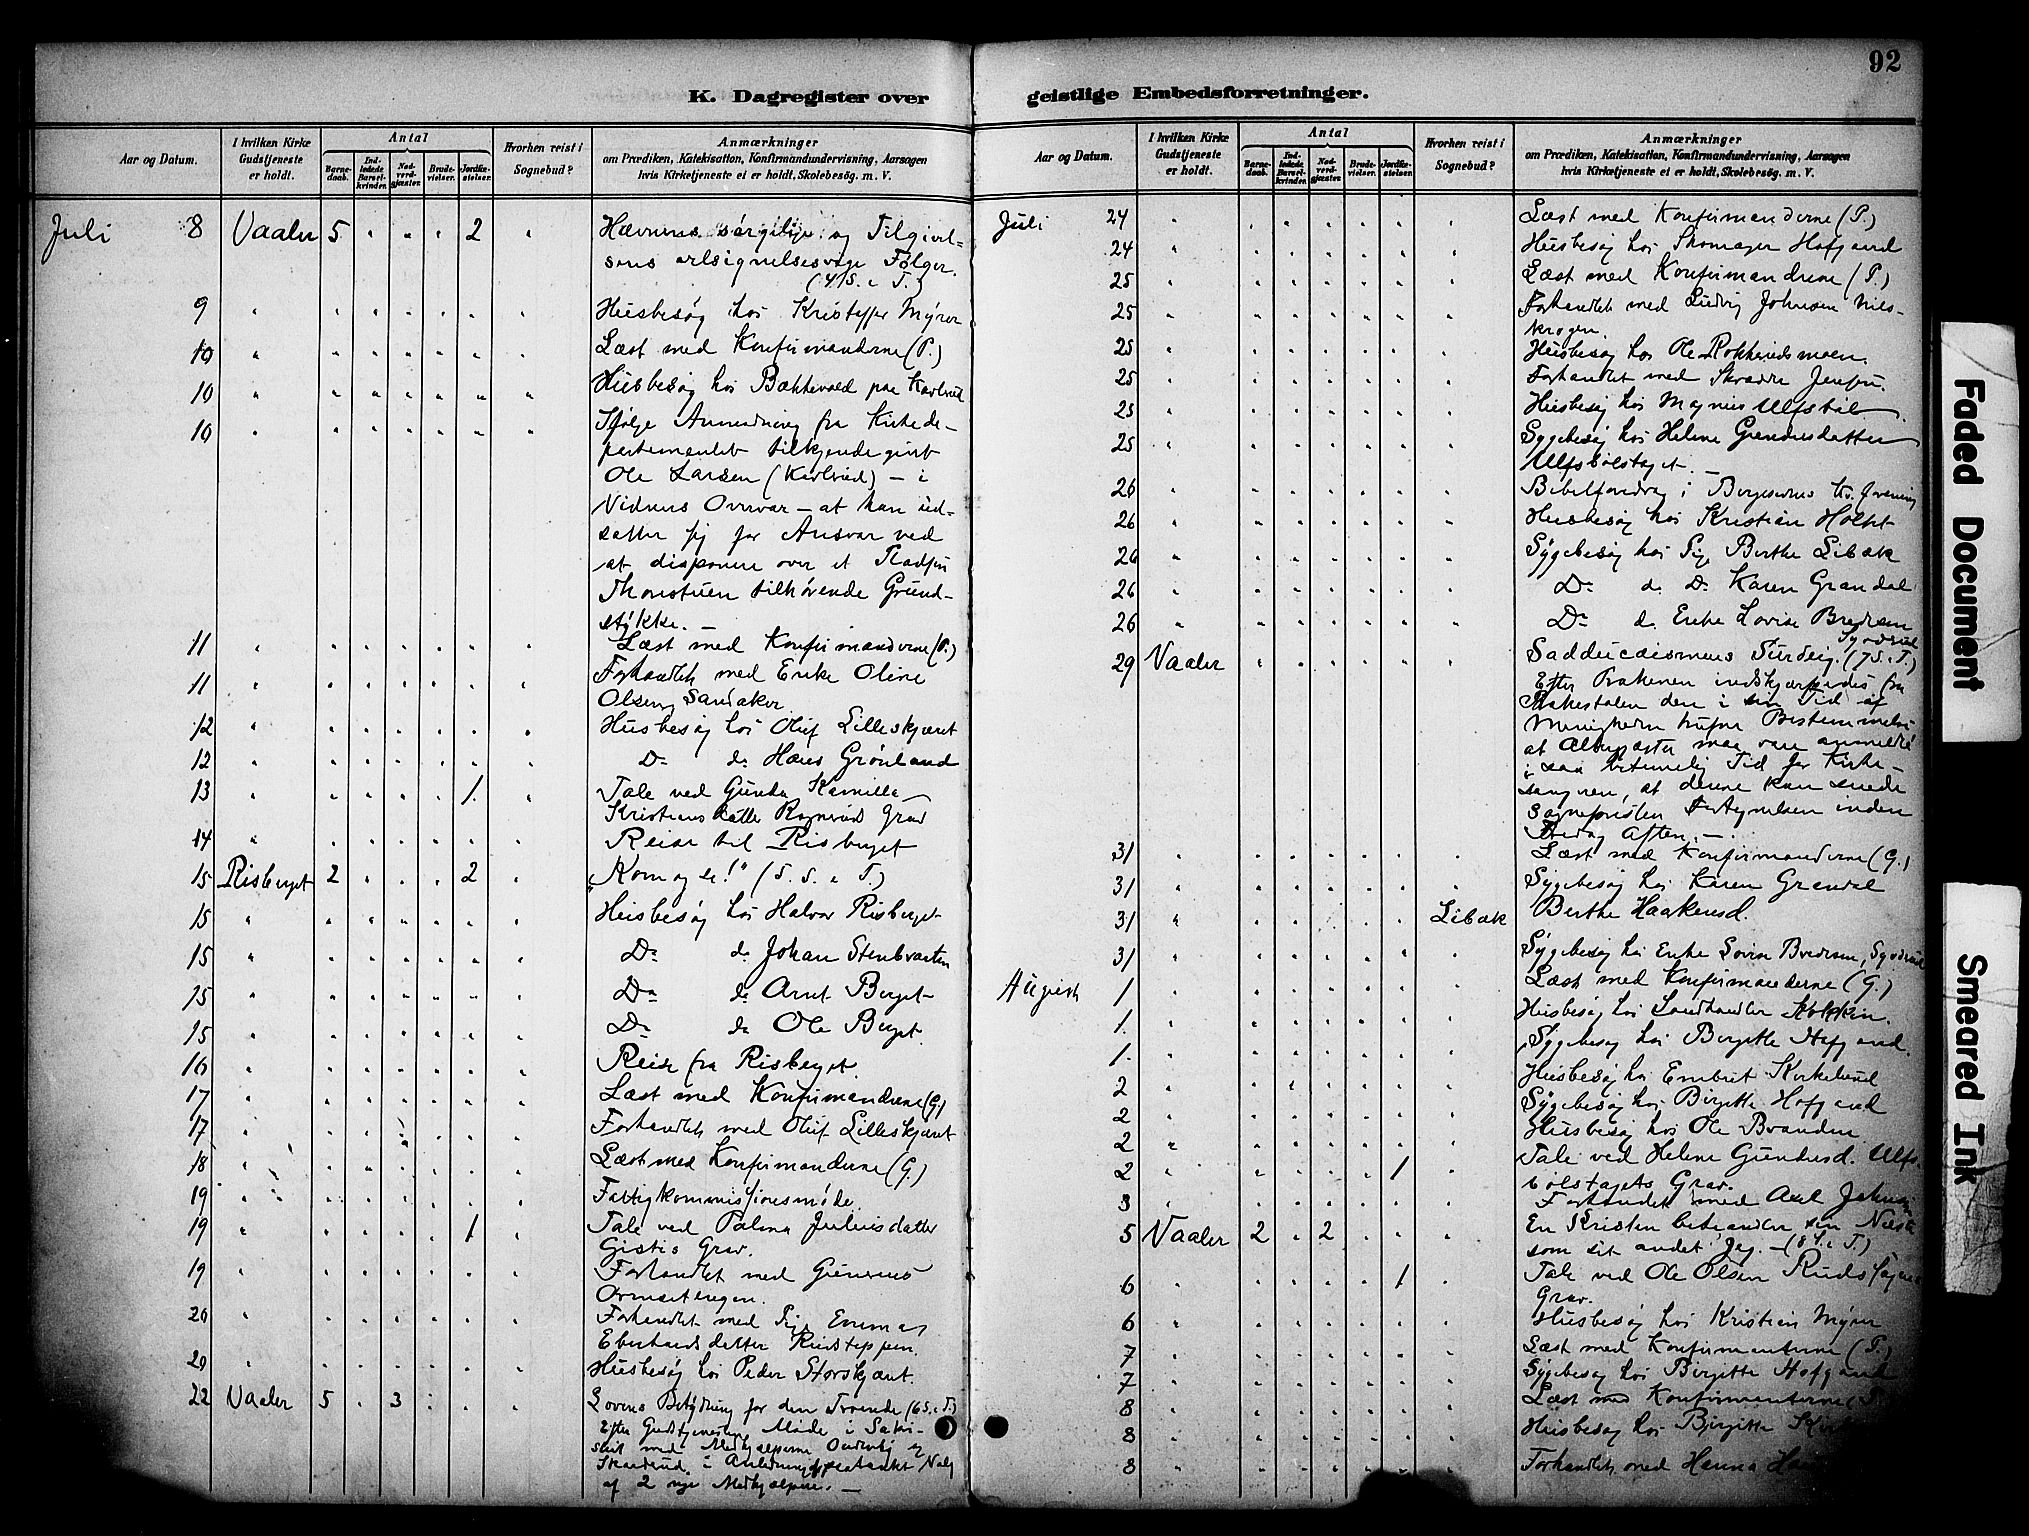 92
K. Dagregister over geistlige Embedsforretninger.
Aar og Datum. I hvilken Kirke Gudstjeneste er holdt. Antal Barnedaab. Indledede Barselkvinder. Nadverdgjæster. Brudevielser. Jordfæstelser. Hvorhen reist i Sognebud? Anmærkninger om Prædiken, Katekisation, Konfirmandundervisning, Aarsagen hvis Kirketjeneste ei er holdt, Skolebesøg. m. V.
Juli 8 Vaaler 5 " " " 2 " Hævnens sørgelige og Tilgivel-
sens velsignelsesrige Følger.
(4 S. e. T.)
9 Husbesøg hos Kristoffer Myrer
10 Læst med Konfirmanderne (P.)
10 Husbesøg hos Bakkevold paa Karlrud
10 Ifølge Anmodning fra Kirkede-
partementet tilkjendegivet
Ole Larsen (Karlrud) – i
Vidners Overvær – at han ud-
sætter sig for Ansvar ved
at disponere over et
tilhørende Grund-
stykke. –
11 Læst med Konfirmanderne (P.)
11 Forhandlet med Enke Oline
Olsen, Sandaker
12 Husbesøg hos Oluf Lilleskjæret
12 Do do Hans Grønland
13 1. Tale ved Gunda Kamilla
Kristiansdatter Grav
14 Reise til Risberget
15 Risberget 2 " " " 2 " "Kom og se!" (5. S. e. T.)
15 Husbesøg hos Halvor Risberget
15 Do do Johan Stenbraaten
15 Do do Arnt Berget
15 Do do Ole Berget.
16 Reise fra Risberget.
17 Læst med Konfirmanderne (G.)
17 Forhandlet med Oluf Lilleskjæret
18 Læst med Konfirmanderne (G.)
19 Fattigkommissionsmøde.
19 1 Tale ved Palma Juliusdatter
Gistis Grav.
19 Forhandlet med
20 Forhandlet med Pige Emma
Eberhardsdatter
20 Husbesøg hos Peder Storskjæret.
22 Vaaler 5 " 3 " " " Lovens Betydning for den Troende (6 S. e. T.)
Efter Gudstjenesten Møde i Sakri-
stiet med Medhjælperne og
Skaarud i Anledning paatænkt Valg
af 2 nye Medhjælpere. –
K. Dagregister over geistlige Embedsforretninger.
Aar og Datum. I hvilken Kirke Gudstjeneste er holdt. Antal Barnedaab. Indledede Barselkvinder. Nadverdgjæster. Brudevielser. Jordfæstelser. Hvorhen reist i Sognebud? Anmærkninger om Prædiken, Katekisation, Konfirmandundervisning, Aarsagen hvis Kirketjeneste ei er holdt, Skolebesøg. m. V.
Juli 24 Læst med Konfirmanderne (P.)
24 Husbesøg hos Skomager Hofgaard
25 Læst med Konfirmanderne (P.)
25 Forhandlet med Ludvig Johnsen Nils-
krogen.
25 Husbesøg hos Ole Rokkendsmoen.
25 Forhandlet med Skrædder Jensen.
25 Husbesøg hos Magnus Ulfsbøl
25 Sygebesøg hos Helene Gundersdatter
Ulfsbølstaget. –
26 Bibelforedrag i
26 Husbesøg hos Kristian Holst
26 Sygebesøg hos Pige Berthe Libæk
26 Do do Do Karen Grandal
26 Do do Enke Lovise Bredesen
Syversrud
29 Vaaler Sadducæismens Surdeig. (7 S. e. T.)
Efter Prækenen indskjærpedes fra
Prækestolen den i sin Tid af
Menigheden trufne Bestemmelse
at Altergjæster maa være anmeldte
i saa betimelig Tid for Kirke-
sangeren, at denne kan sende
Sognepresten Fortegnelsen inden
Fredag Aften. –
31 Læst med Konfirmanderne (G.)
31 Sygebesøg hos Karen Grandal
31 Libæk Berthe Haakensd.
31 Sygebesøg hos Enke Lovise Bredesen, Syversrud
August 1 Læst med Konfirmanderne (G.)
1. Husbesøg hos Landhandler
1. Sygebesøg hos Birgitte Hofgaard.
2 Husbesøg hos Embret Kirkelund
2 Sygebesøg hos Birgitte Hofgaard
2 Husbesøg hos Ole Branden
2 1 Tale ved Helene Gundersd. Ulfs-
bølstagets Grav.
3 Forhandlet med Axel Johnsen
5 Vaaler 2 " 2 " " " En Kristen behandler sin Næste
som sit andet Jeg. – (8 S. e. T.)
6 1 Tale ved Ole Olsen
Grav.
6 Husbesøg hos Kristian Myrer
7 Læst med Konfirmanterne (P.)
7 Sygebesøg hos Birgitte Hofgaard
8 Læst med Konfirmanterne
8 Husbesøg hos Birgitte
8 Forhandlet med Hanna
Faded Document
Smeared Ink